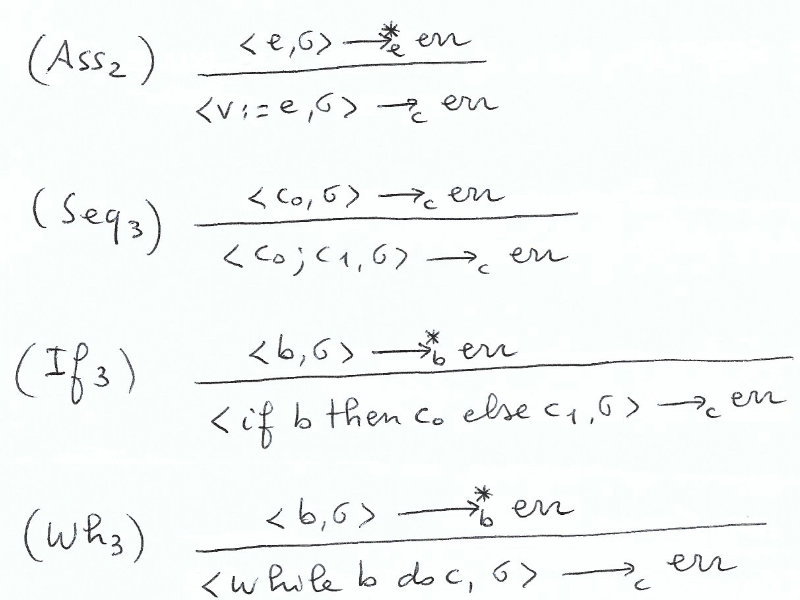 (Ass₂) <e,σ> →*ₑ err
<v:=e,σ> →_c err
(Seq₃) <c₀,σ> →_c err
<c₀;c₁,σ> →_c err
(If₃) <b,σ> →*_b err
<if b then c₀ else c₁,σ> →_c err
(Wh₃) <b,σ> →*_b err
<while b do c, σ> →_c err